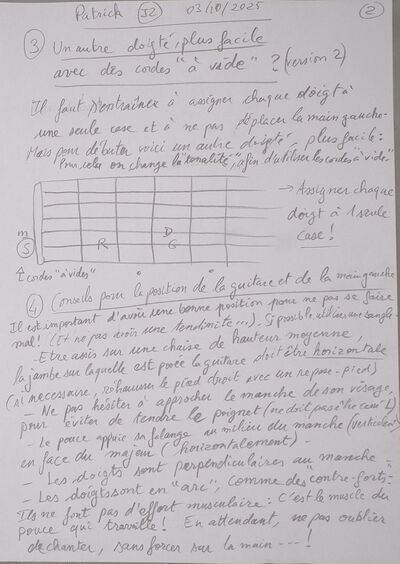 Patrick J2 03/10/2025 2
3 Un autre doigté, plus facile
avec des cordes "à vide" ? (version 2)
Il faut s'entraîner à assigner chaque doigt à
une seule case et à ne pas déplacer la main gauche.
Mais pour débuter voici un autre doigté, plus facile:
Pour cela on change la tonalité, afin d'utiliser les cordes "à vide"
→ Assigner chaque
doigt à 1 seule
case !
m D
S R G
↑ cordes "à vides"
4 Conseils pour la position de la guitare et de la main gauche
Il est important d'avoir une bonne position pour ne pas se faire
mal ! (Et ne pas avoir une tendinite...). Si possible, utiliser une sangle
- Etre assis sur une chaise de hauteur moyenne,
la jambe sur laquelle est posée la guitare doit être horizontale
(si nécessaire, réhausser le pied droit avec un repose-pied)
- Ne pas hésiter à approcher le manche de son visage,
pour éviter de tendre le poignet (ne doit pas être comme 1 L)
- Le pouce appuie sa phalange au milieu du manche (verticalement)
en face du majeur (horizontalement) -
- Les doigts sont perpendiculaires au manche -
- Les doigts sont en "arc", comme des "contre-forts" -
Ils ne font pas d'effort musculaire : C'est le muscle du
pouce qui travaille ! En attendant, ne pas oublier
de chanter, sans forcer sur la main --- !